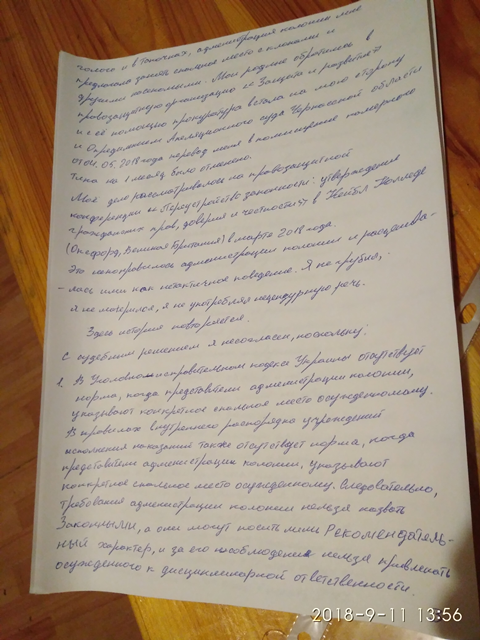 голоса и в Топочках, администрация колонии мне
предлагала занять спальное место с
другими насильными. Мои родные обратились в
правозащитную организацию «Защита и развитие»
и с её помощью прокуратура встала на мою сторону
и Определением Апеляционного суда Черкасской области
от 04.05.2018 года перевод меня в помещение камерного
типа на 1 месяц было отменено.
Моё дело рассматривалось на правозащитной
конференции «Переустройство законности: утверждение
гражданских прав, доверия и честности» в Кейбл Колледж
(Оксфорд, Великая Британия) в марте 2018 года.
Это непонравилось администрации колонии и расценива-
-лась ими как нетактичное поведение. Я не грубил,
я не матерился, я не употреблял нецензурную речь.
Здесь история повторяется.
С судебным решением я несогласен, поскольку:
1. В Уголовно-исправительном кодексе Украины отсутствует
норма, когда представители администрации колонии,
указывают конкретное спальное место осужденному.
В правилах внутреннего распорядка учреждений
исполнения наказаний также отсутствует норма, когда
представители администрации колонии, указывают
конкретное спальное место осужденному. Следовательно,
требования администрации колонии нельзя назвать
Законными, а они могут носить лишь Рекомендатель-
ный характер, и за его несоблюдения нельзя привлекать
осужденного к дисциплинарной ответственности.
2018-9-11 13:56